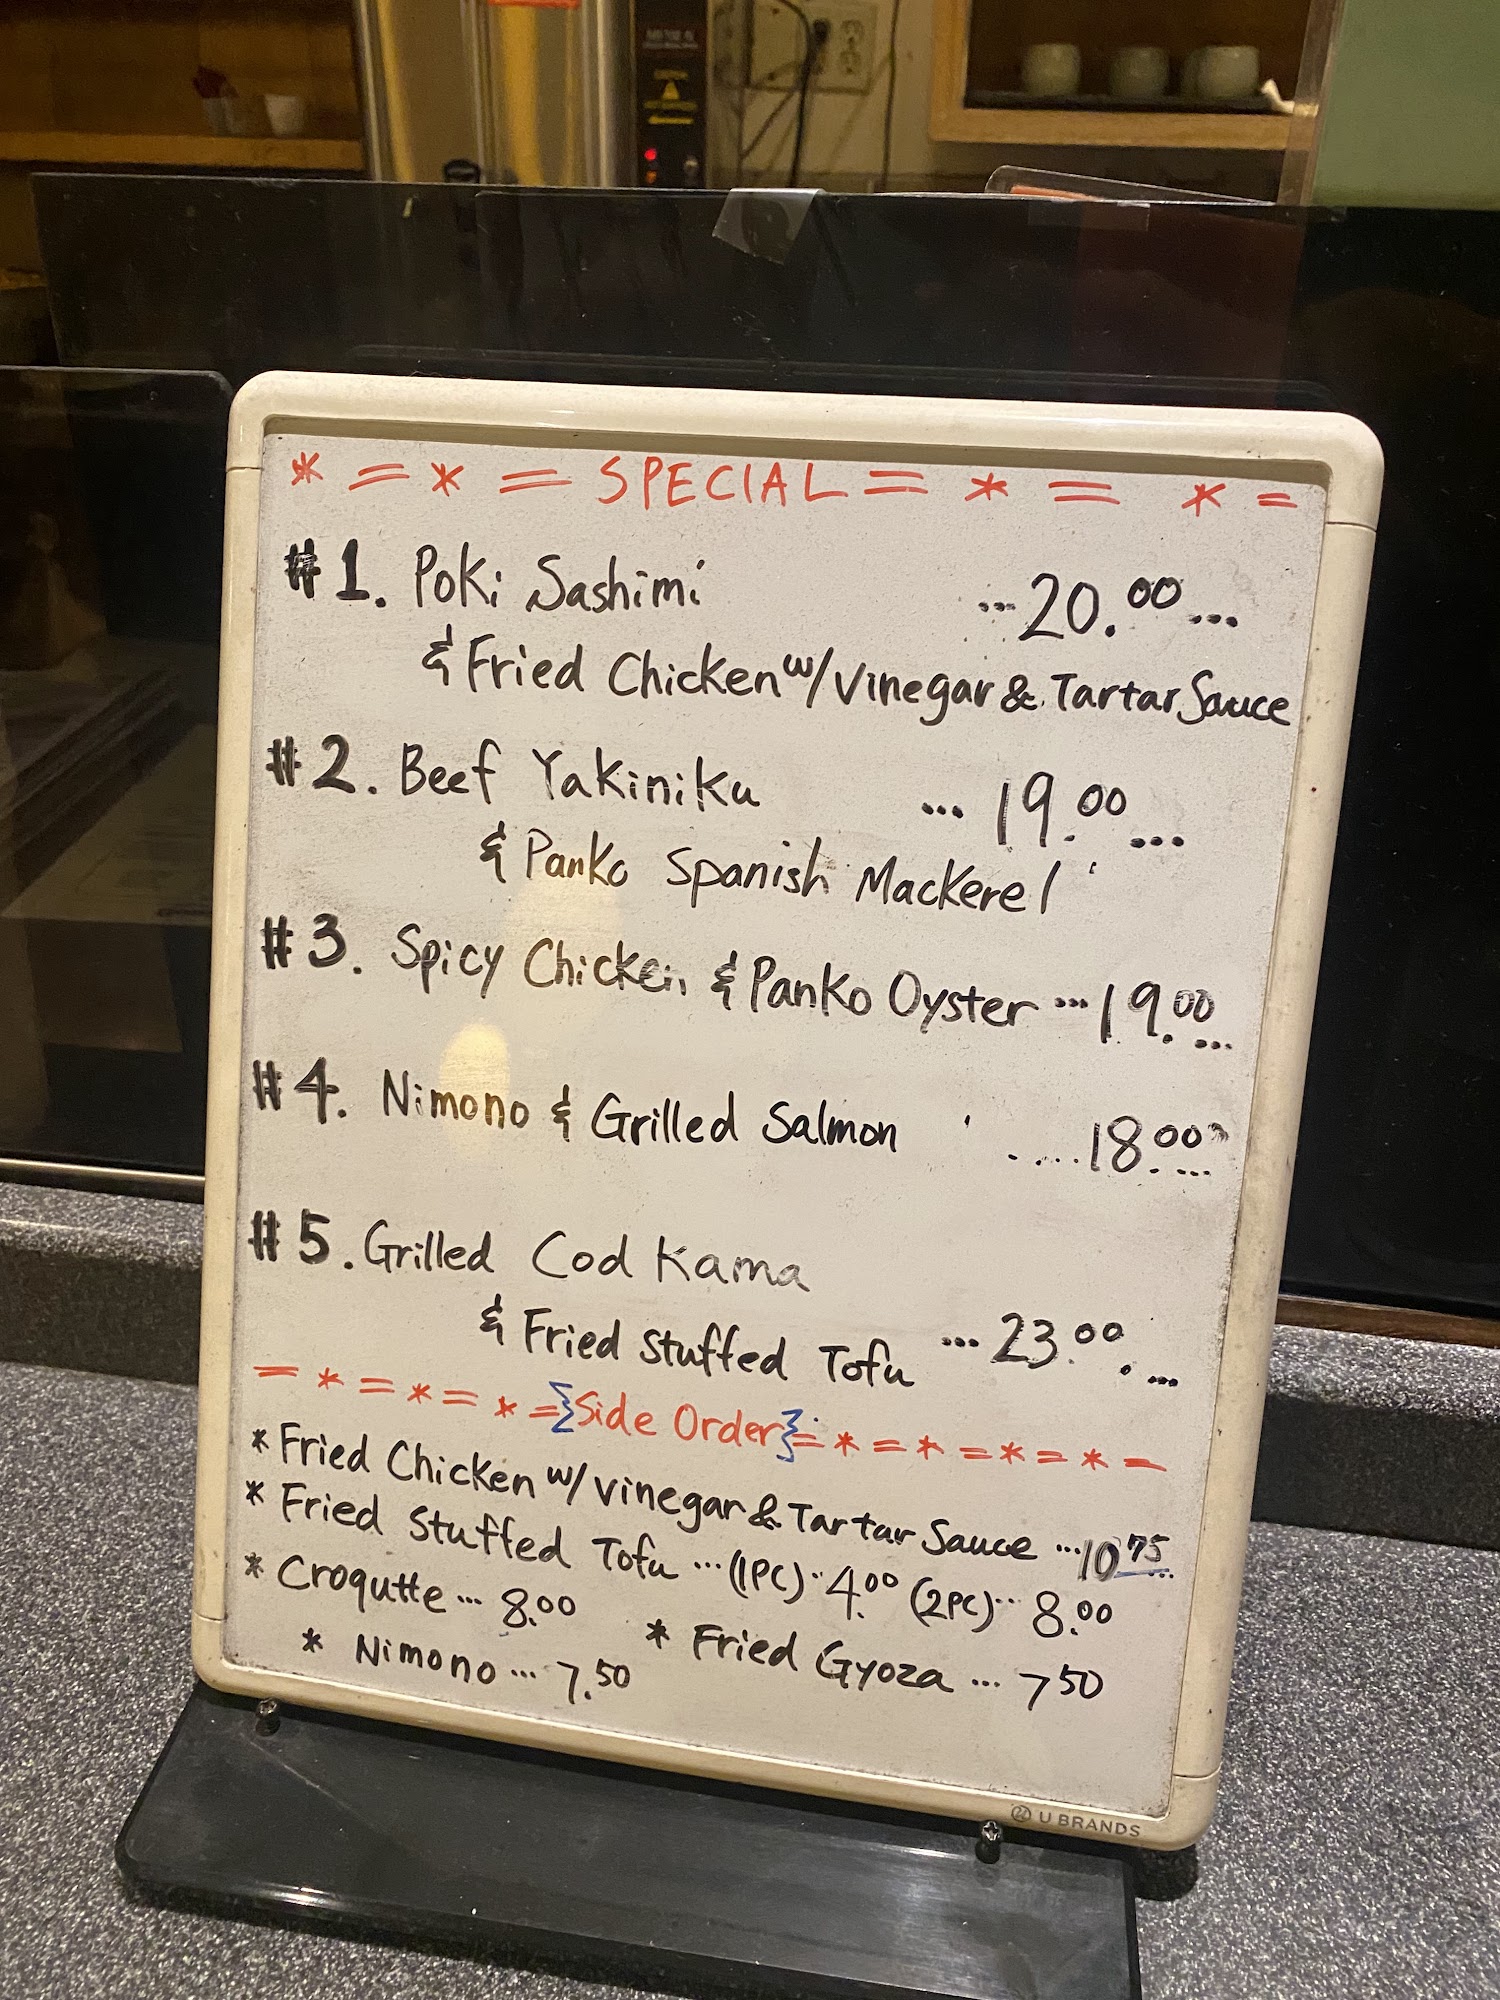 * = * = SPECIAL = * = * =
#1. Poki Sashimi ...20.00...
& Fried Chicken w/ Vinegar & Tartar Sauce
#2. Beef Yakiniku ... 19.00...
& Panko Spanish Mackerel
#3. Spicy Chicken & Panko Oyster ...19.00...
#4. Nimono & Grilled Salmon ....18.00...
#5. Grilled Cod Kama
& Fried Stuffed Tofu ...23.00...
= * = * = * = {Side Order} = * = * = * = * =
* Fried Chicken w/ Vinegar & Tartar Sauce ...10 75...
* Fried Stuffed Tofu ... (1PC) .. 4.00 (2PC) ... 8.00
* Croqutte ... 8.00
* Nimono ... 7.50
* Fried Gyoza ... 7 50
U BRANDS